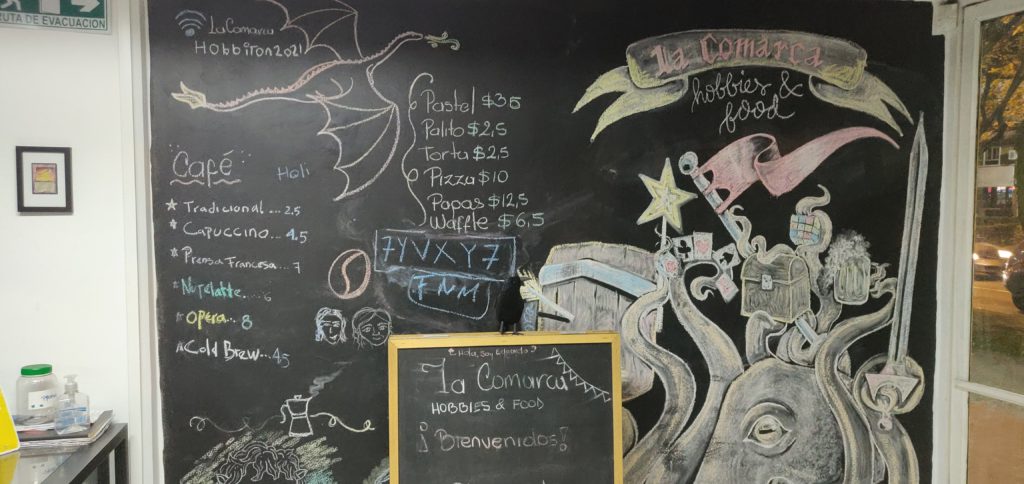 RUTA DE EVACUACION
La Comarca
Hobbiton2021
Café
Holi
Tradicional....2.5
Capuccino..4,5
Prensa Francesa..7
Nutelatte....6
Opera...8
Cold Brew...4,5
Pastel $3,5
Palito $2,5
Torta $2,5
Pizza $10
Papas $12,5
Waffle $6,5
7YVXY7
FMM
La Comarca
hobbies &
food
La Comarca
HOBBIES & FOOD
¡Bienvenidos!